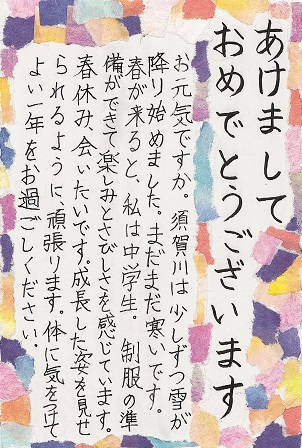 あけまして
おめでとうございます
お元気ですか。須賀川は少しずつ雪が
降り始めました。まだまだ寒いです。
春が来ると、私は中学生。制服の準
備ができて楽しみとさびしさを感じています。
春休み、会いたいです。成長した姿を見せ
られるように、頑張ります。体に気をつけて
よい一年をお過ごしください。